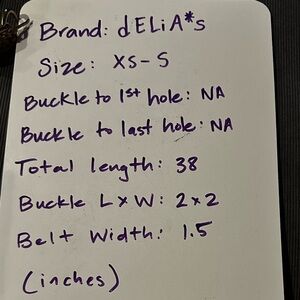 Brand: dELiA*s
Size: XS-S
Buckle to 1st hole: NA
Buckle to last hole: NA
Total length: 38
Buckle L x W: 2x2
Belt Width: 1.5
(inches)